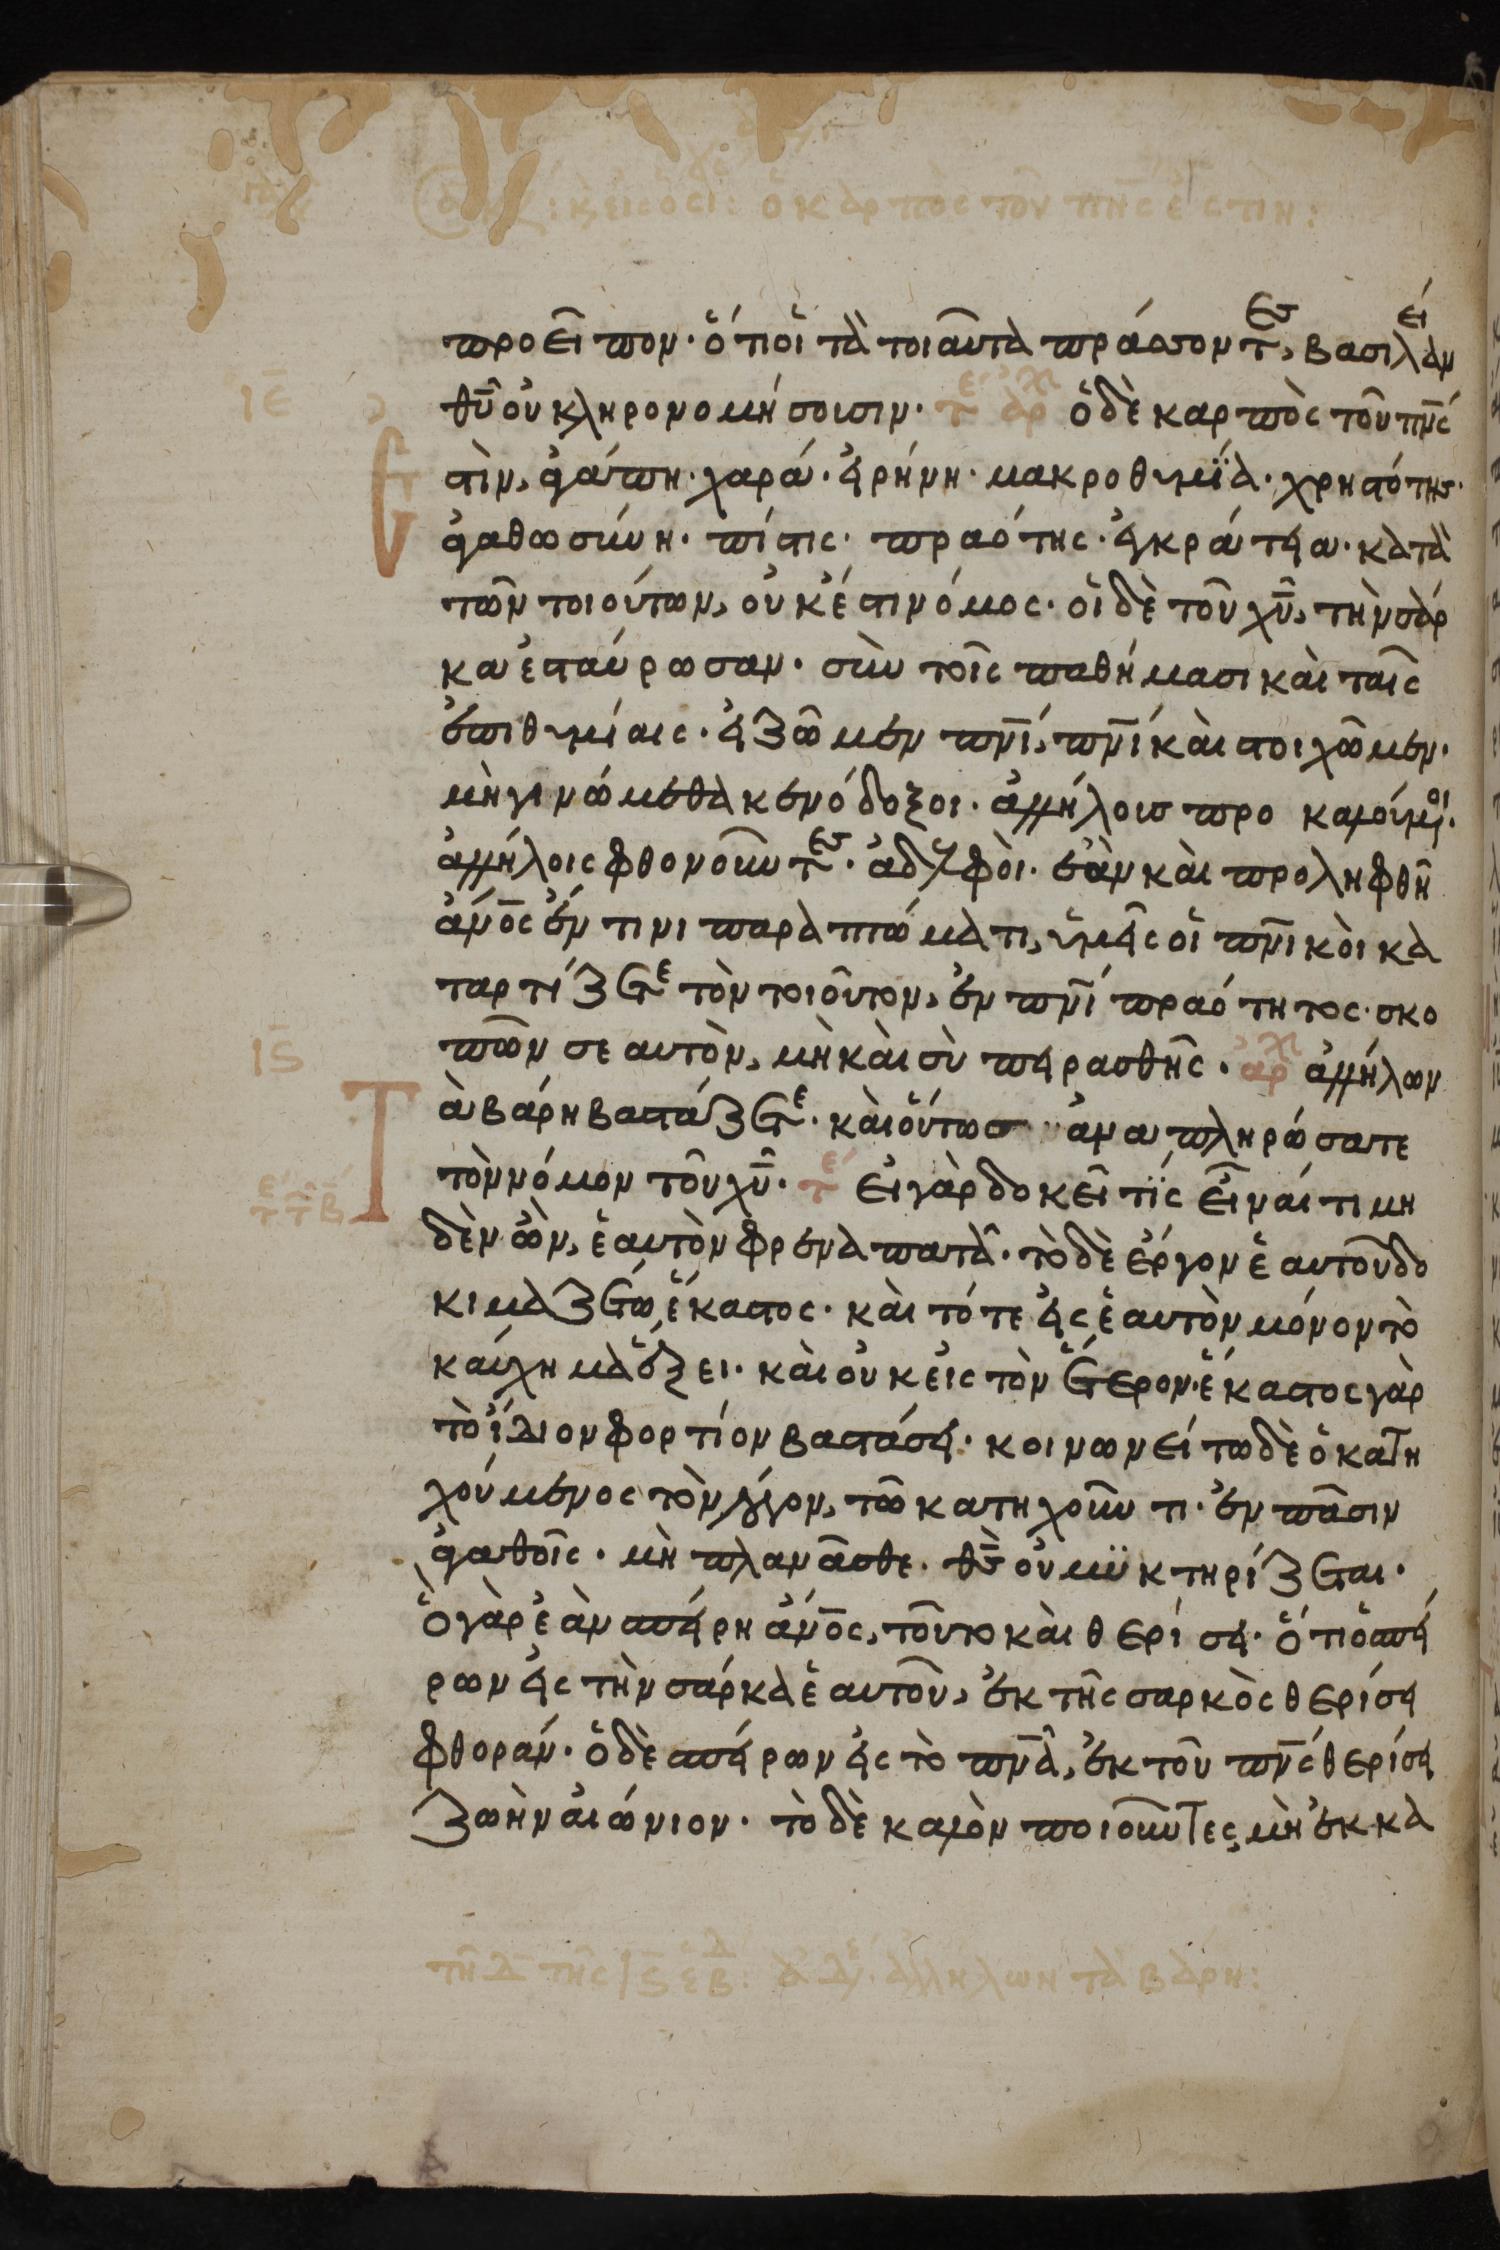 : κ εις οσι : ὁ καρπὸς τοῦ πν̅ς ἐστὶν :
προεῖπον· ὅτι οἱ τὰ τοιαῦτα πράσσοντες, βασιλείαν
ιε
θῦ οὐ κληρονομήσουσιν· τε αρχ ὁ δὲ καρπὸς τοῦ πν̅ς ἐ
στὶν, ἀγάπη· χαρά· εἰρήνη· μακροθυμΐα· χρηστότης·
ἀγαθωσύνη· πίστις· πραότης· ἐγκράτεια· κατὰ
τῶν τοιούτων, οὐκ ἔστι νόμος· οἱ δὲ τοῦ χῦ, τὴν σάρ
κα ἐσταύρωσαν· σὺν τοῖς παθήμασι καὶ ταῖς
ἐπιθυμίαις· εἰ ζῶμεν πν̅ί, πν̅ί καὶ στοιχῶμεν·
μὴ γινώμεθα κενόδοξοι· ἀλλήλους προκαλούμενοι·
ἀλλήλοις φθονοῦντες· ἀδελφοὶ· ἐὰν καὶ προληφθῆ
ἀν̅ος ἔν τινι παραπτώματι, ὑμεῖς οἱ πν̅ικοὶ κα
ταρτίζετε τὸν τοιοῦτον, ἐν πν̅ί πραότητος· σκο
ις
πῶν σεαυτὸν, μὴ καὶ σὺ πειρασθῆς· αρχ ἀλλήλων
Τὰ βάρη βαστάζετε· καὶ οὕτως ἀναπληρώσατε
τε τ̅ β̅
τὸν νόμον τοῦ χῦ· τε εἰ γὰρ δοκεῖ τῒς εἶναί τι μη
δὲν ὢν, ἑαυτὸν φρεναπατᾶ· τὸ δὲ ἔργον ἑαυτοῦ δο
κιμαζέτω ἕκαστος· καὶ τότε εἰς ἑαυτὸν μόνον τὸ
καύχημα ἕξει· καὶ οὐκ εἰς τὸν ἕτερον· ἕκαστος γὰρ
τὸ ἴδιον φορτίον βαστάσει· κοινωνείτω δὲ ὁ κατη
χούμενος τὸν λόγον, τῶ κατηχοῦντι· ἐν πᾶσιν
ἀγαθοῖς· μὴ πλανᾶσθε· θ̅ς οὐ μϋκτηρίζεται·
ὃ γὰρ ἐὰν σπείρη ἀν̅ος, τοῦτο καὶ θερίσει· ὅτι ὁ σπεί
ρων εἰς τὴν σάρκα ἑαυτοῦ, ἐκ τῆς σαρκὸς θερίσει
φθοράν· ὁ δὲ σπείρων εἰς τὸ πν̅ὰ, ἐκ τοῦ πν̅ς θερίσει
ζωὴν αἰώνιον· τὸ δὲ καλὸν ποιοῦντες, μὴ ἐκκα
τῆ Δ τῆς ις εβδ : ἀδ. ἀλλήλων τὰ βάρη :